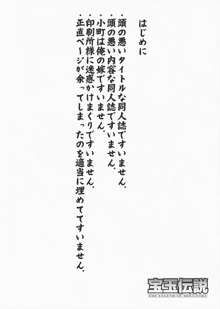 はじめに
・頭の悪いタイトルな同人誌ですいません。
・頭の悪い内容な同人誌ですいません。
・小町は俺の嫁ですいません。
・印刷所様に迷惑かけまくりですいません。
・正直ページが余ってしまったのを適当に埋めててすいません。
宝玉伝説